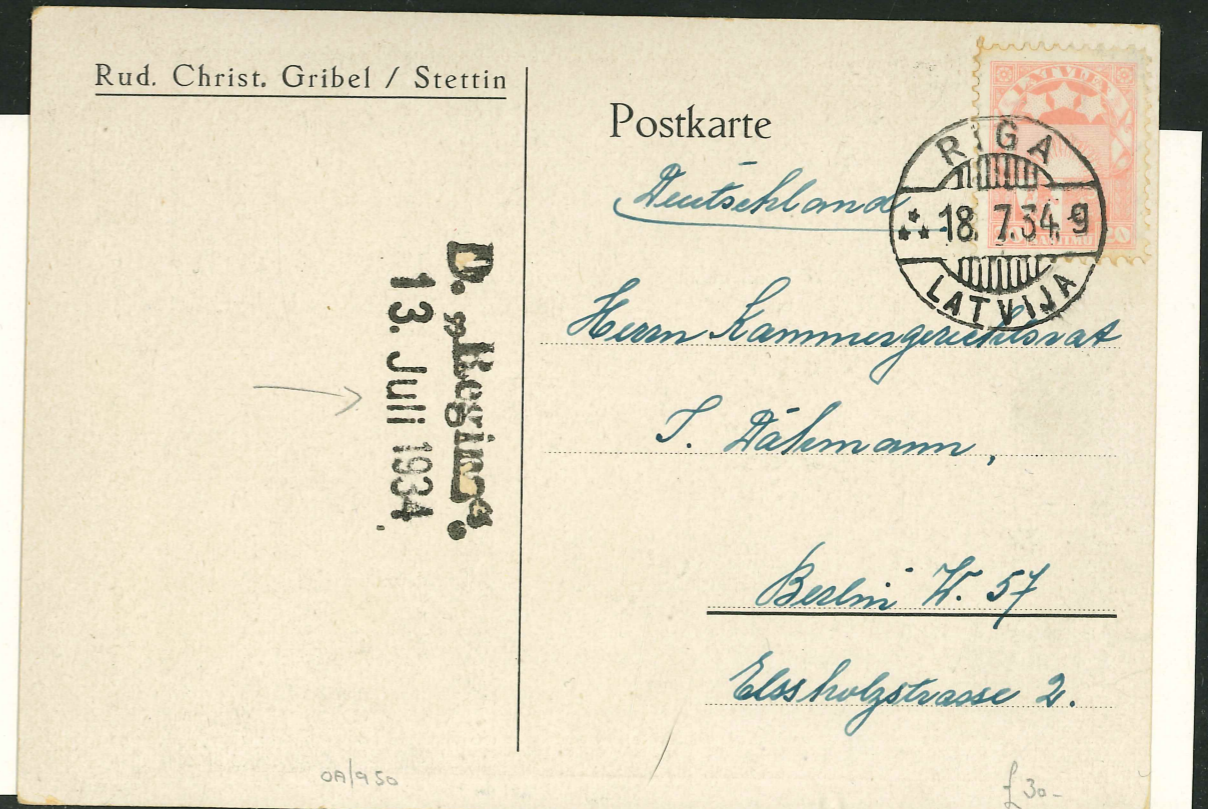 Rud. Christ. Gribel / Stettin
Postkarte
Deutschland
LATVIJA
RIGA
18. 7.34. 9
LATVIJA
D. „Regina“.
13. Juli 1934
Herrn Kammergerichtsrat
J. Dähmann,
Berlin W. 57
Elssholzstrasse 2.
OA/950
£ 30-